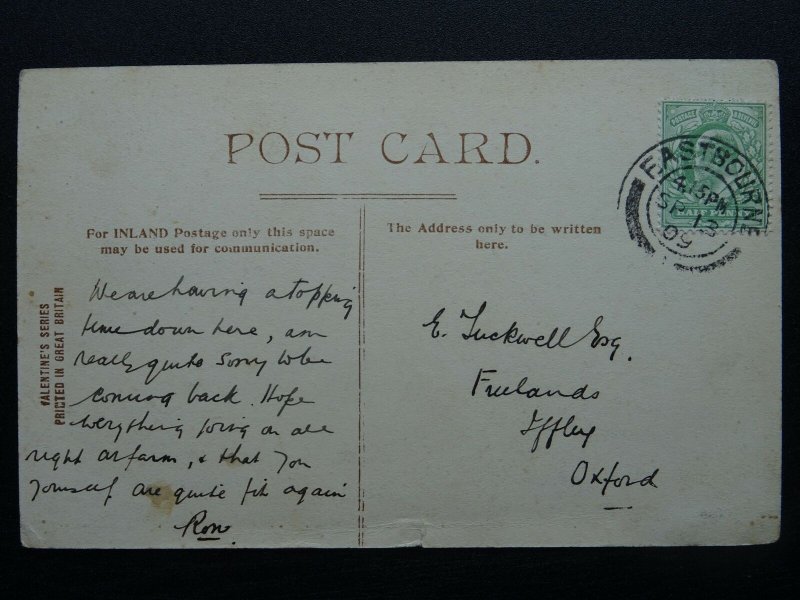 POST CARD.
For INLAND Postage only this space
may be used for communication.
The Address only to be written
here.
VALENTINE'S SERIES
PRINTED IN GREAT BRITAIN
POSTAGE REVENUE
EASTBOURNE
4.15 PM
SP 13
09
We are having a topping
time down here, am
really quite sorry to be
coming back. Hope
everything going on all
right at farm, & that you
yourself are quite fit again
Ron
E. Luckwell Esq.
Freelands
Iffley
Oxford